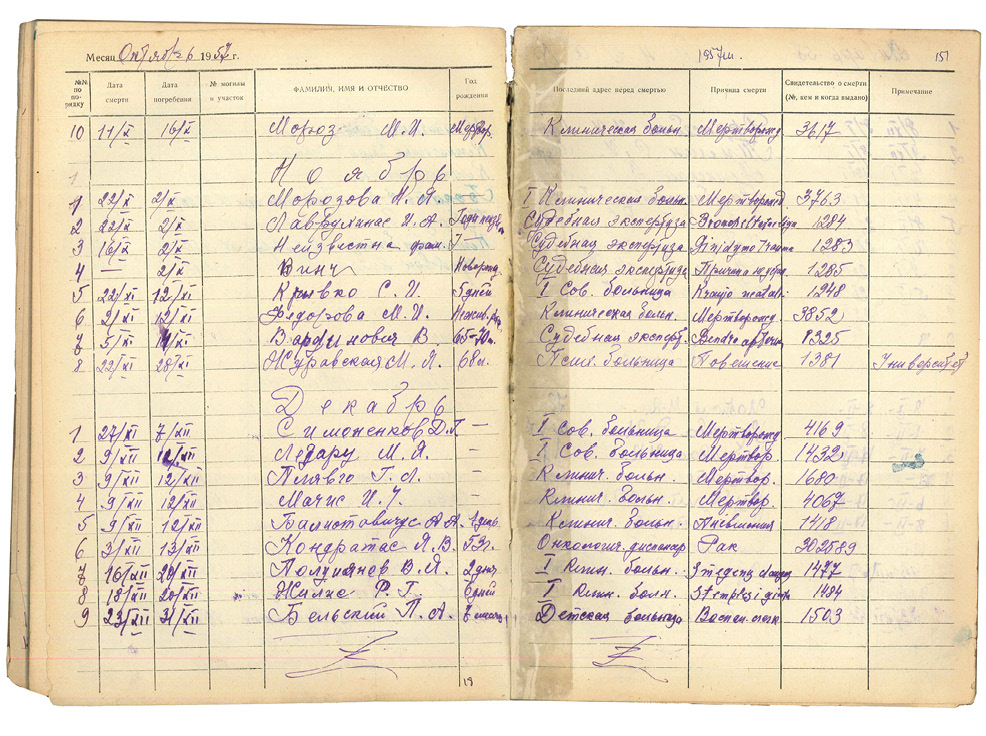 Месяц Октябрь 1957 г. 1957 г. 151
№№ по порядку Дата смерти Дата погребения № могилы и участок ФАМИЛИЯ, ИМЯ И ОТЧЕСТВО Год рождения Последний адрес перед смертью Причина смерти Свидетельство о смерти (№, кем и когда выдано) Примечание
10 11/X 16/X Мороз М. И. Мертвор. Клиническая больн. Мерворожд 3617
Ноябрь
1 22/X 2/X Морозова М. Я. I Клиническая больн. Мертворожд. 3763
2 22/X 2/X И. А. Судебная экспертиза 1284
3 16/X 2/X Неизвестна фам. Судебная экспертиза 1283
4 — 2/X Новорожд. Судебная экспертиза Причина 1285
5 22/XI 12/XI Крывко С. И. 5 дней I Сов. больница 1248
6 2/XI 12/XI Федорова М. И. Клиническая больн. Мертворожд. 3852
7 5/XI В. 65-70 л. Судебная эксперт. 8325
8 22/XI 28/XI Журавская М. Я. 68 л. Псих. больница Повешение 1381 Университет
Декабрь
1 27/XI 7/XII Симоненков Д. Г. — I Сов. больница Мертворожд 4169
2 9/XII 12/XII М. Я. — I Сов. больница Мертвор. 1432
3 9/XII 12/XII Г. А. — Клинич. больн. Мертвор. 1680
4 9/XII 12/XII Мачис И. — Клинич. больн. Мертвор. 4067
5 9/XII 12/XII А. А. 1 день Клинич. больн. Пневмония 1418
6 3/XII 13/XII Кондратас Я. В. 53 г. Онкологич. диспансер Рак 302589
7 16/XII 20/XII В. Я. 2 дня I Клин. больн. 1477
8 18/XII 20/XII Жилис Р. Г. 6 дней I Клин. болн. 1484
9 23/XII 31/XII Бельский П. А. 7 месяц Детская больница Воспал. 1503
19